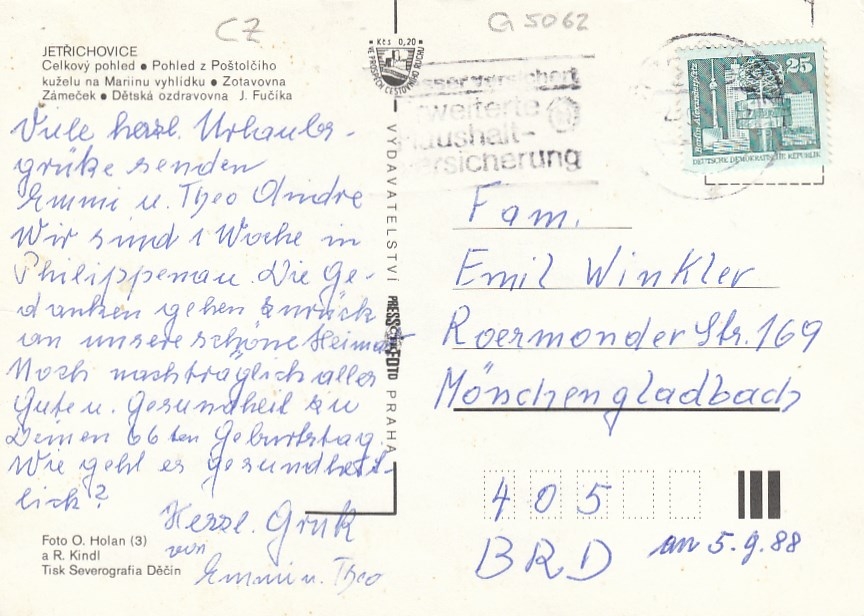 CZ
G 5062
JETŘICHOVICE
Celkový pohled ● Pohled z Poštolčího
kuželu na Mariinu vyhlídku ● Zotavovna
Zámeček ● Dětská ozdravovna J. Fučíka
Viele herzl. Urlaubs-
grüße senden
Emmi u. Theo Andre
Wir sind 1 Woche in
Philippenau. Die Ge-
danken gehen zurück
an unsere schöne Heimat
Noch nachträglich alles
Gute u. Gesundheit zu
Deinen 66ten Geburtstag.
Wie geht es gesundheit-
lich?
Herzl. Gruß
von
Emmi u. Theo
Foto O. Holan (3)
a R. Kindl
Tisk Severografia Děčín
Kčs 0,20
VE PROSPĚCH CESTOVNÍHO RUCHU
VYDAVATELSTVÍ PRESSFOTO PRAHA
ssergersichert
weiterte
aushalt-
ersicherung
25
Berlin, Alexanderplatz
DEUTSCHE DEMOKRATISCHE REPUBLIK
Fam.
Emil Winkler
Roermonder Str. 169
Mönchengladbach
405
BRD
an 5.9.88